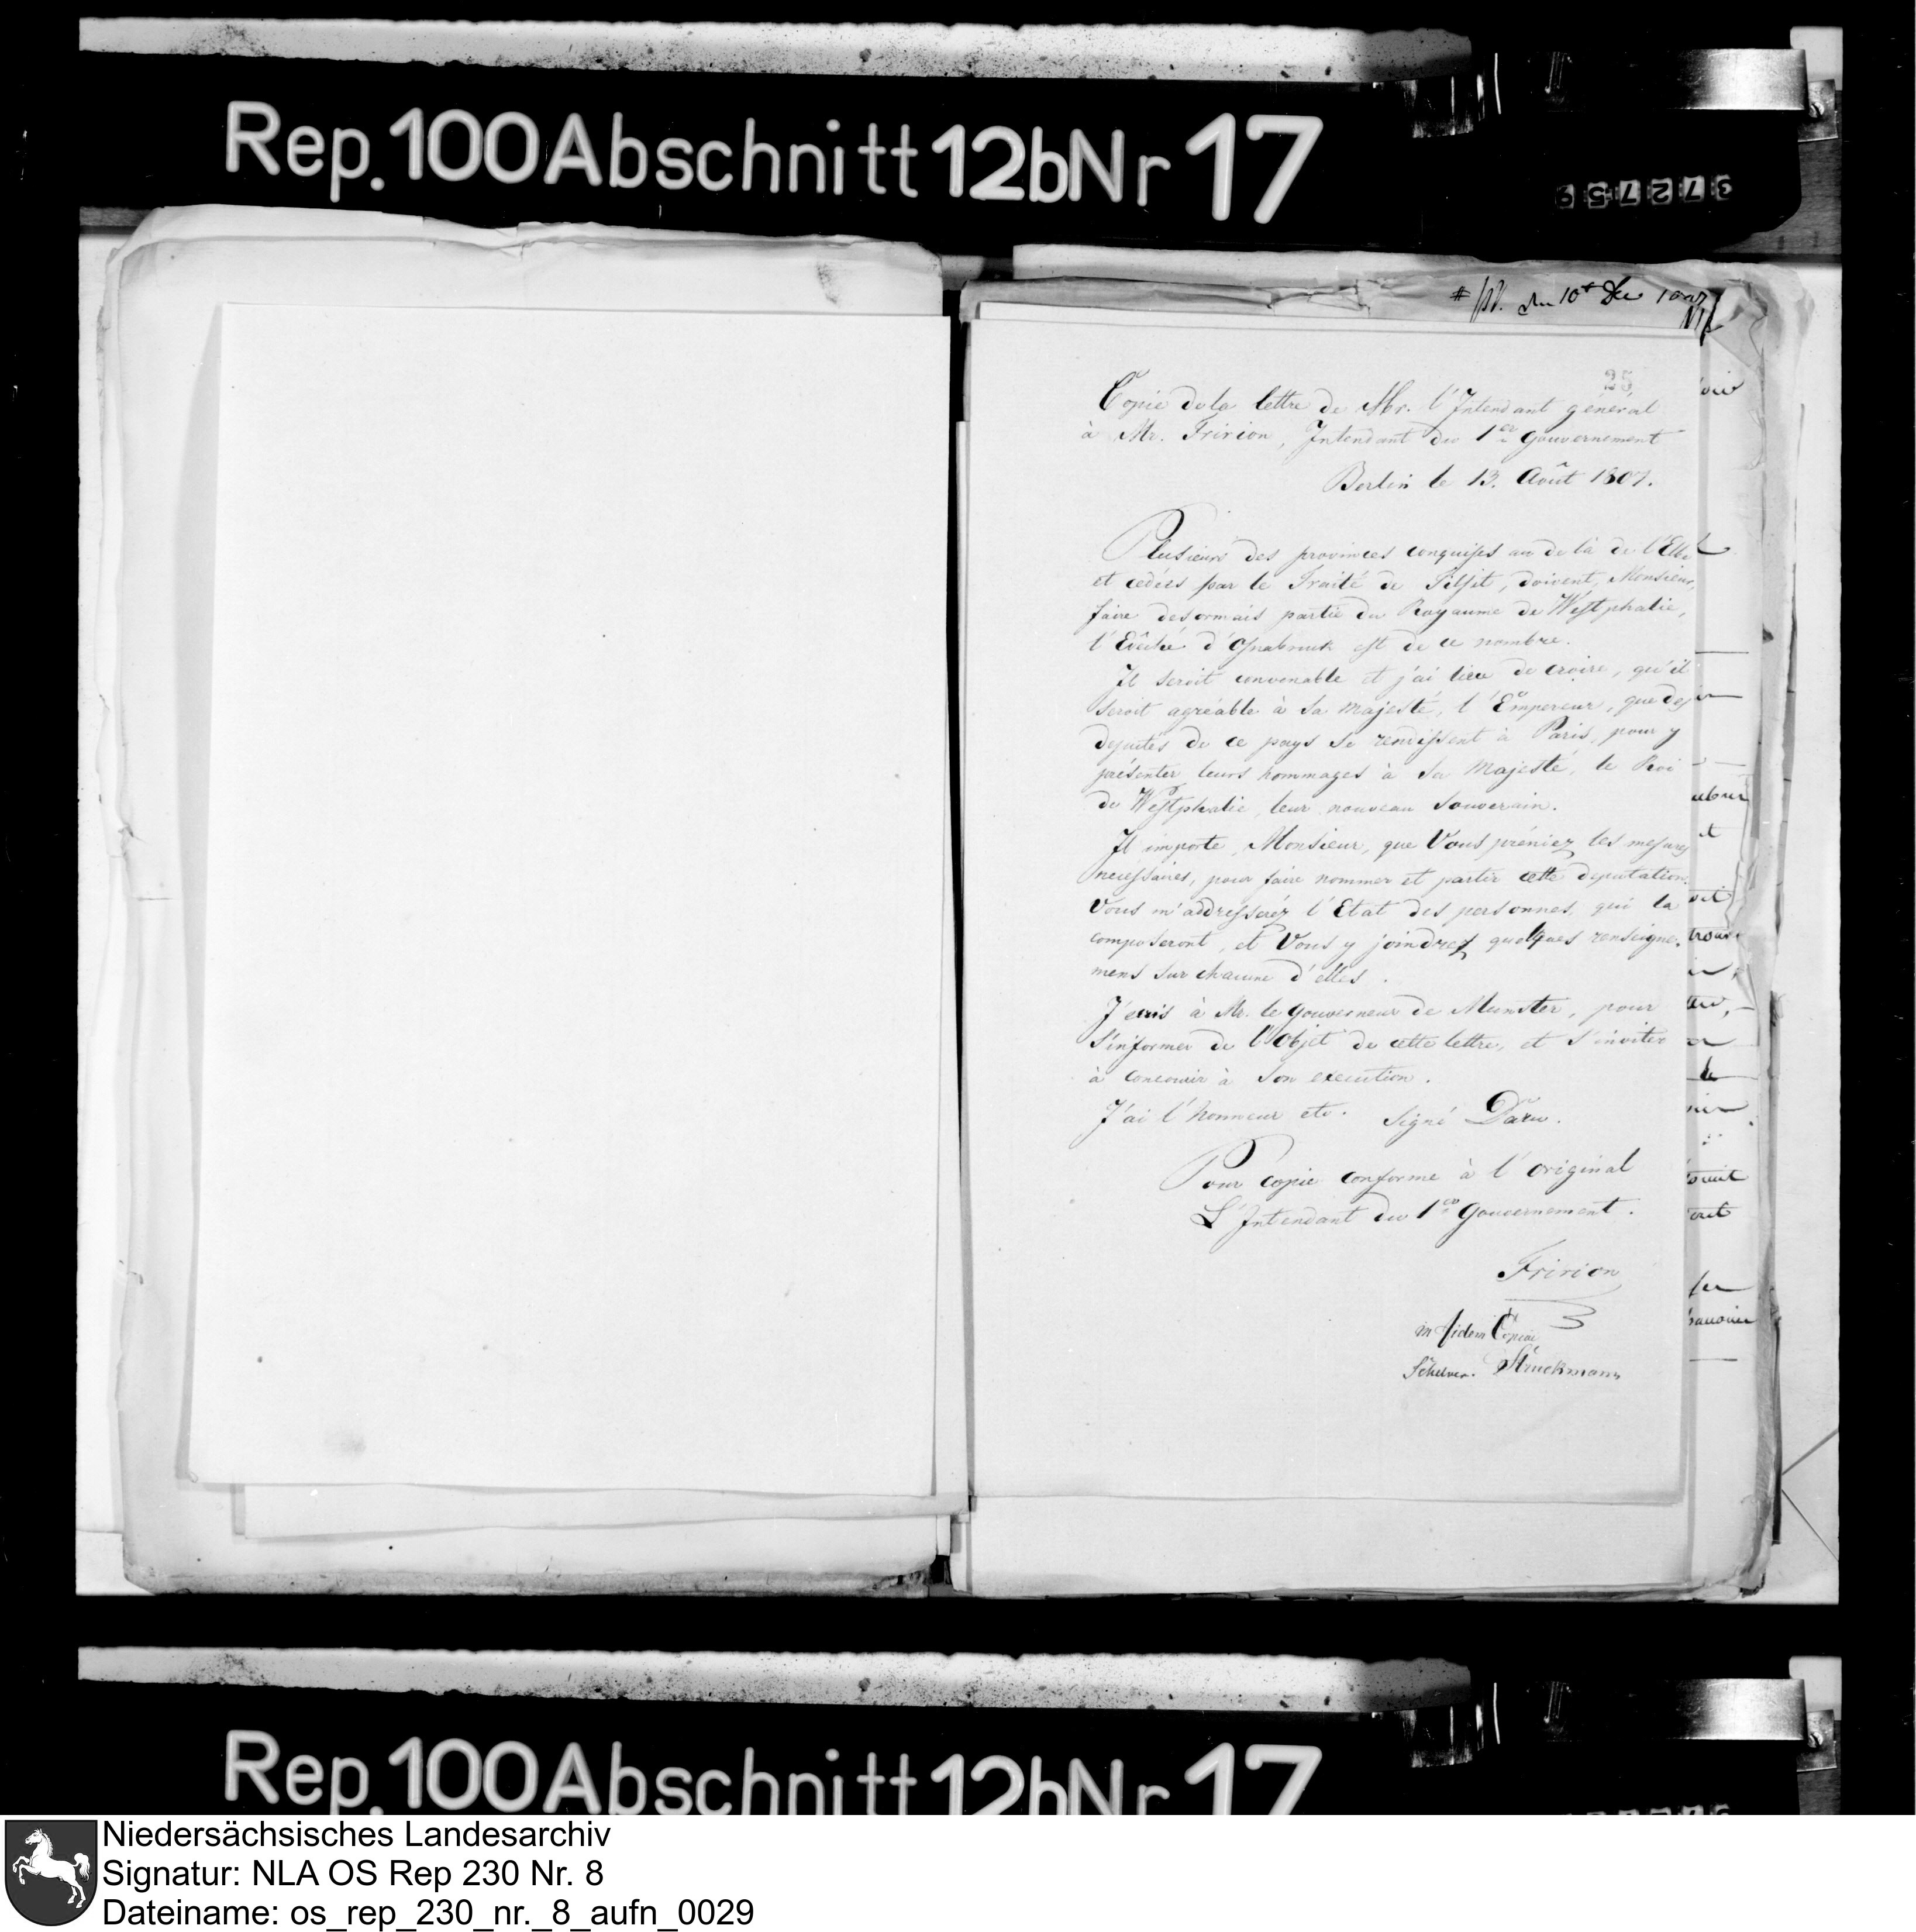 Rep.100Abschnitt12bNr 17
372759
# du 10t Dec 1807
25
Copie de la lettre de Mr. l'Intendant général
à Mr. Fririon, Intendant du 1er Gouvernement
Berlin le 13. Août 1807.
Plusieurs des provinces conquises au de là de l'Elbe
et cedées par le Traité de Tilsit, doivent, Monsieur,
faire desormais partie du Royaume de Westphalie,
l'Evêché d'Osnabruck est de ce nombre.
Il seroit convenable et j'ai lieu de croire, qu'il
seroit agréable à Sa Majesté, l'Empereur, que des
deputés de ce pays se rendissent à Paris, pour y
présenter leurs hommages à Sa Majesté, le Roi
de Westphalie, leur nouveau Souverain.
Il importe, Monsieur, que Vous préniez les mesures
nécessaires, pour faire nommer et partir cette deputation.
Vous m'addresserez l'Etat des personnes, qui la
composeront, et Vous y joindrez quelques renseigne-
mens sur chacune d'elles.
J'ecris à Mr. le Gouverneur de Munster, pour
l'informer de l'Objet de cette lettre, et l'inviter
à concourir à son execution.
J'ai l'honneur etc. Signé Daru.
Pour copie conforme à l'original
L'Intendant du 1er Gouvernement.
Fririon
in fidem Copiae
Struckmann
Rep.100Abschnitt12bNr 17
Niedersächsisches Landesarchiv
Signatur: NLA OS Rep 230 Nr. 8
Dateiname: os_rep_230_nr._8_aufn_0029